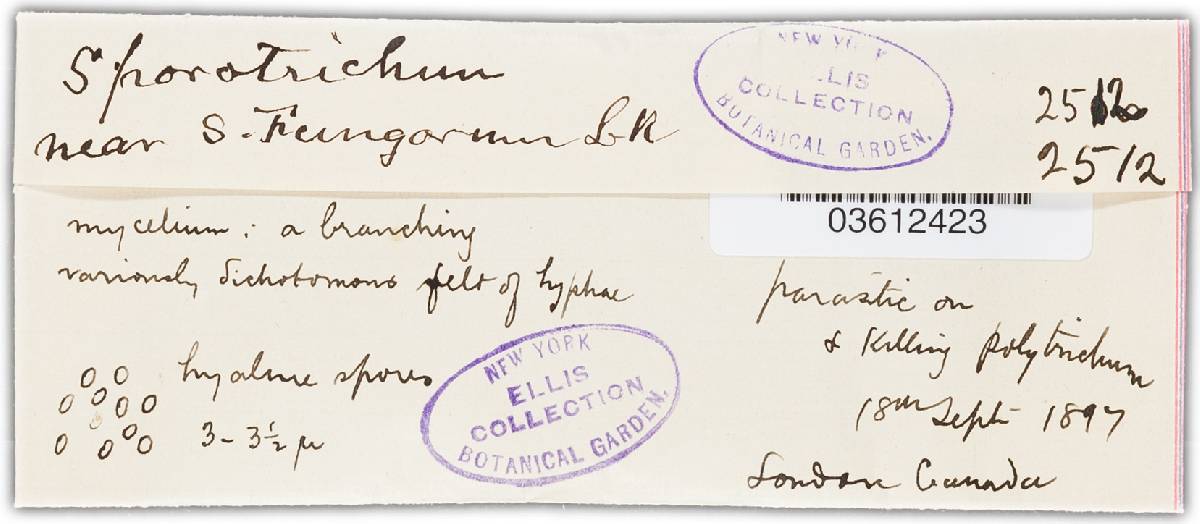 Sporotrichum
near S. Fungorum Lk
NEW YORK
ELLIS
COLLECTION
BOTANICAL GARDEN.
2512
2512
03612423
mycelium: a branching
variously dichotomous felt of hyphae
hyaline spores
3-3½ µ
NEW YORK
ELLIS
COLLECTION
BOTANICAL GARDEN.
parastic on
& killing polytrichum
18th Sept 1897
London Canada